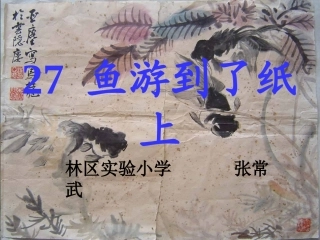 27 鱼游到了纸
上
林区实验小学 张常
武